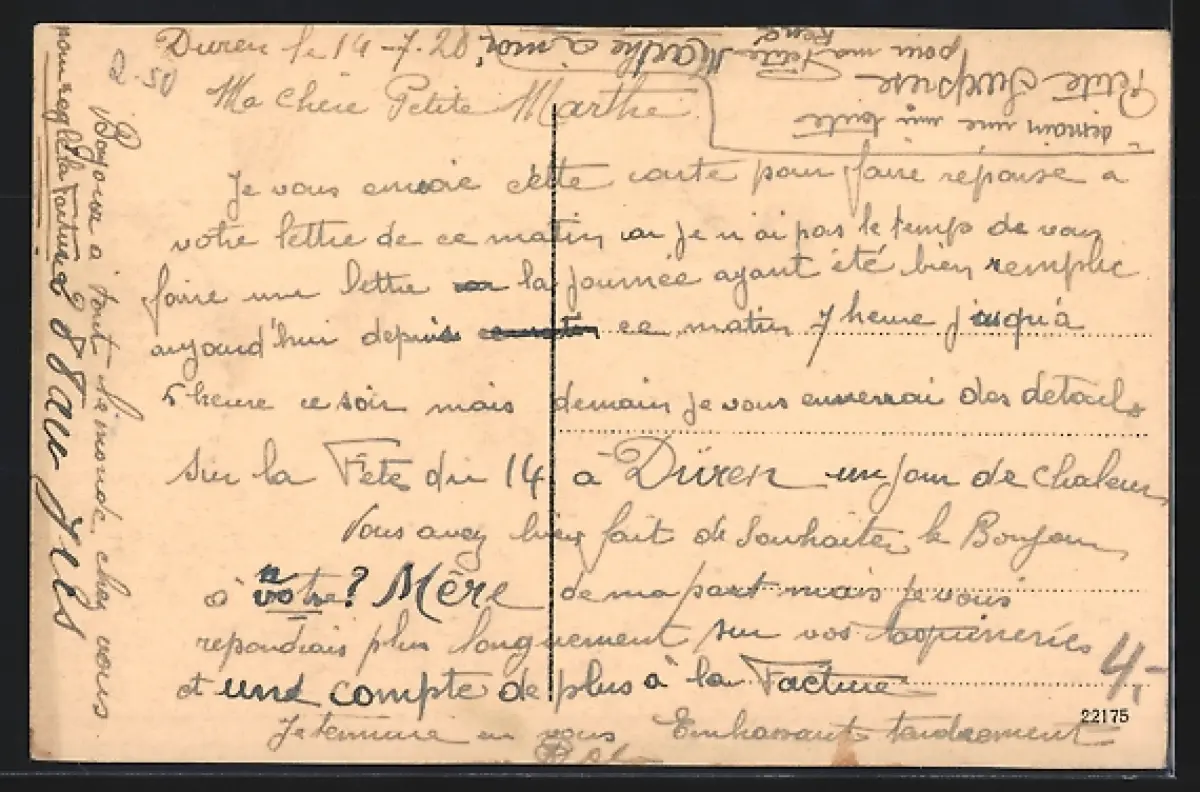 Duren le 14-7-20
Ma chère Petite Marthe
Je vous envoie cette carte pour faire réponse a
votre lettre de ce matin car je n'ai pas le temps de vous
faire une lettre la journée ayant été bien remplie
aujourd'hui depuis ce matin 7 heure jusqu'à
5 heure ce soir mais demain je vous enverrai des details
sur la Fête du 14 à Düren un jour de chaleur
Vous avez bien fait de souhaiter le Bonjour
à votre? Mère de ma part mais je vous
repondrais plus longuement sur vos taquineries
et une compte de plus à la Facture
Je termine en vous Embrassant tendrement
Bonjour à tout le monde chez vous
pour règlé la Facture
demain une
Petite Surprise
pour ma Petite Marthe à moi
René
2.50
4,-
22175